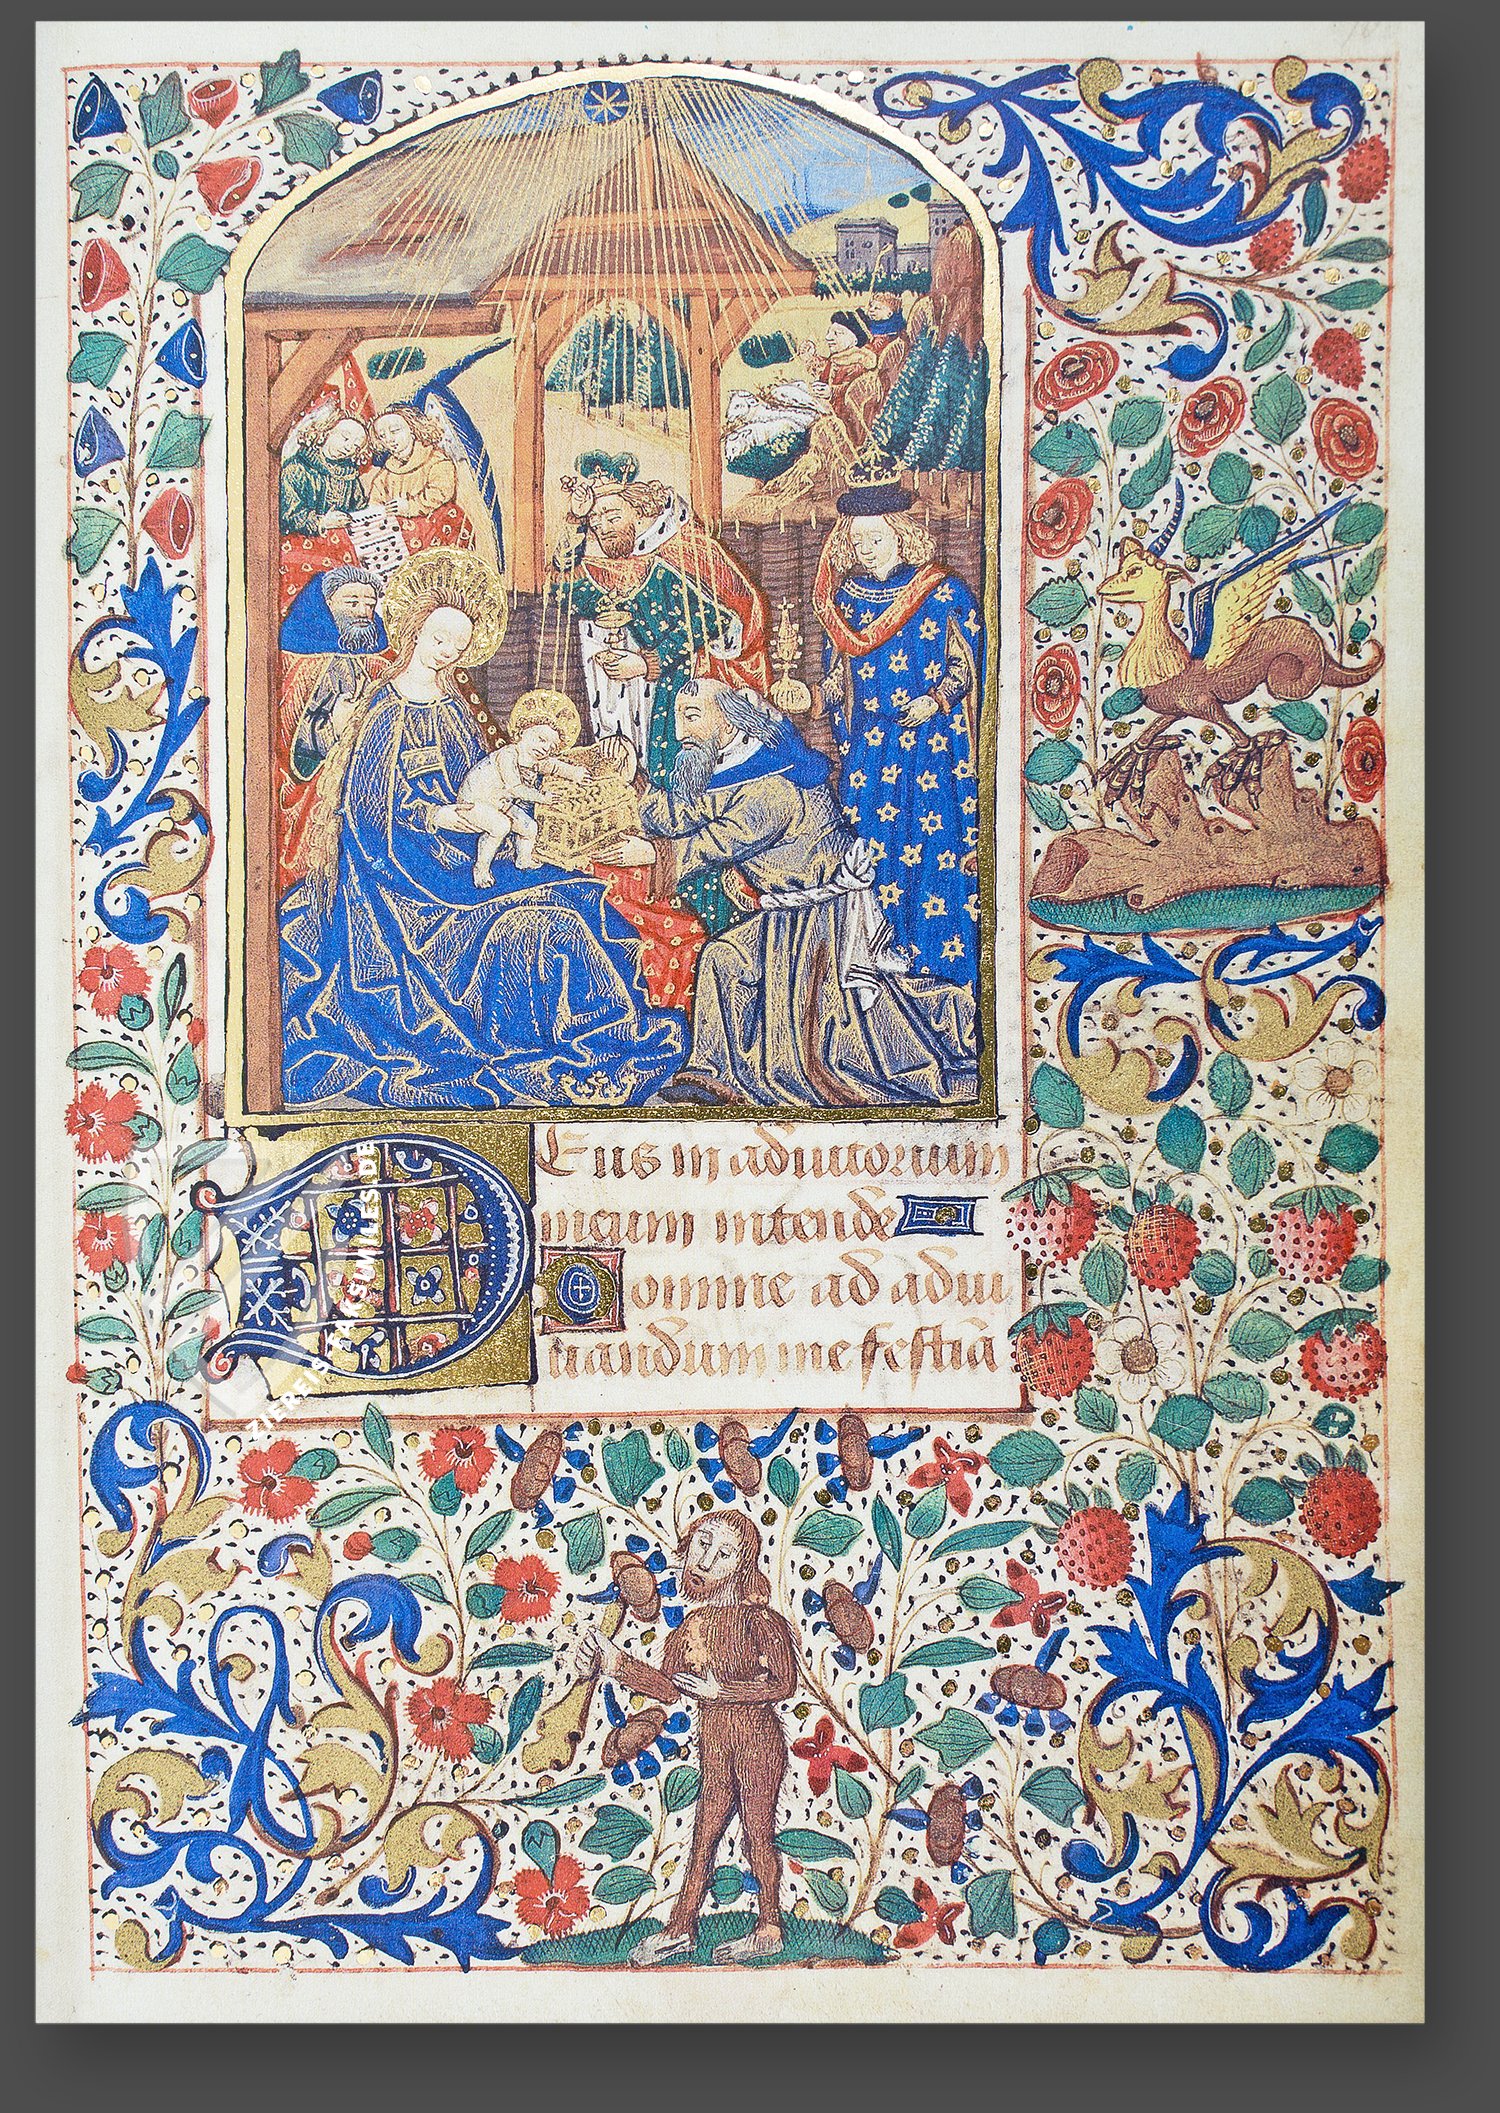 DEus in adiutorium
meum intende
Domine ad adiu
uandum me festiā
ZIEREIS FAKSIMILES.DE